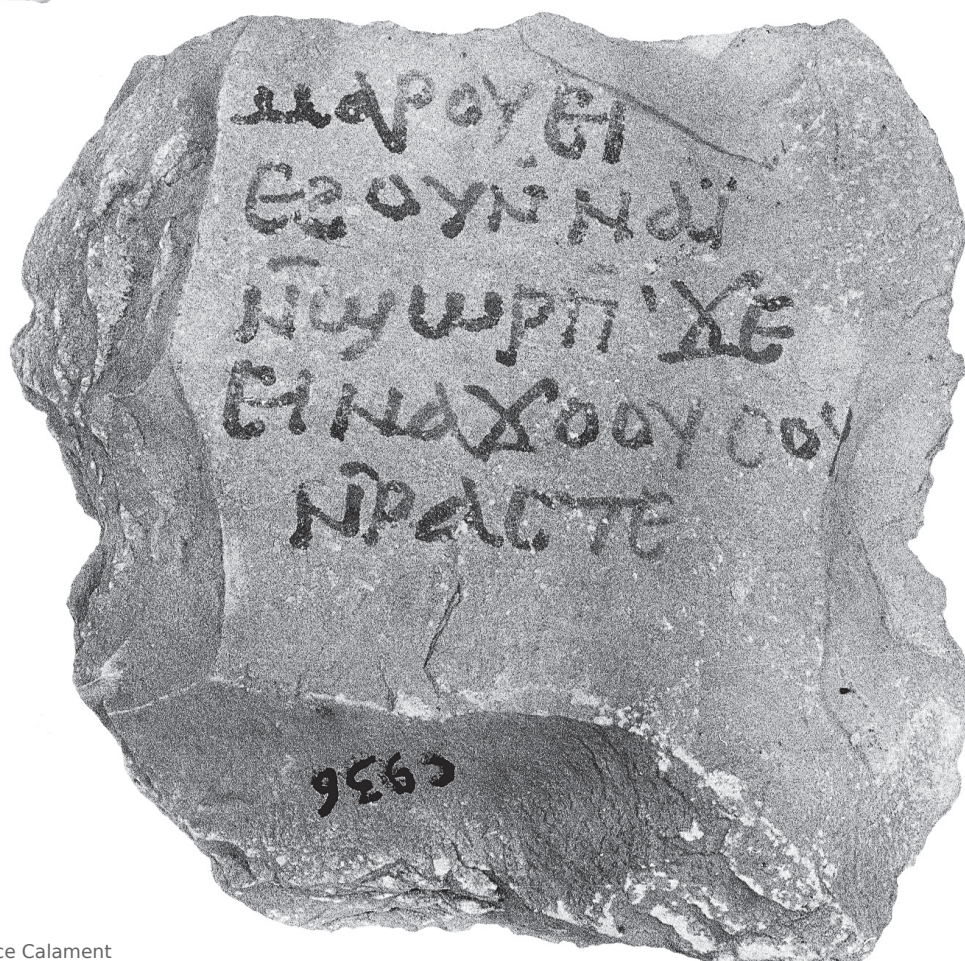 ⲙⲁⲣⲟⲩⲉⲓ
ⲉϩⲟⲩⲛ̇ ⲛⲁⲓ̈
ⲛ̄ϣⲱⲣⲡ̄ ' ϫⲉ
ⲉⲓⲛⲁϫⲟⲟⲩⲥⲟⲩ
ⲛ̄ⲣⲁⲥⲧⲉ
C936
ce Calament